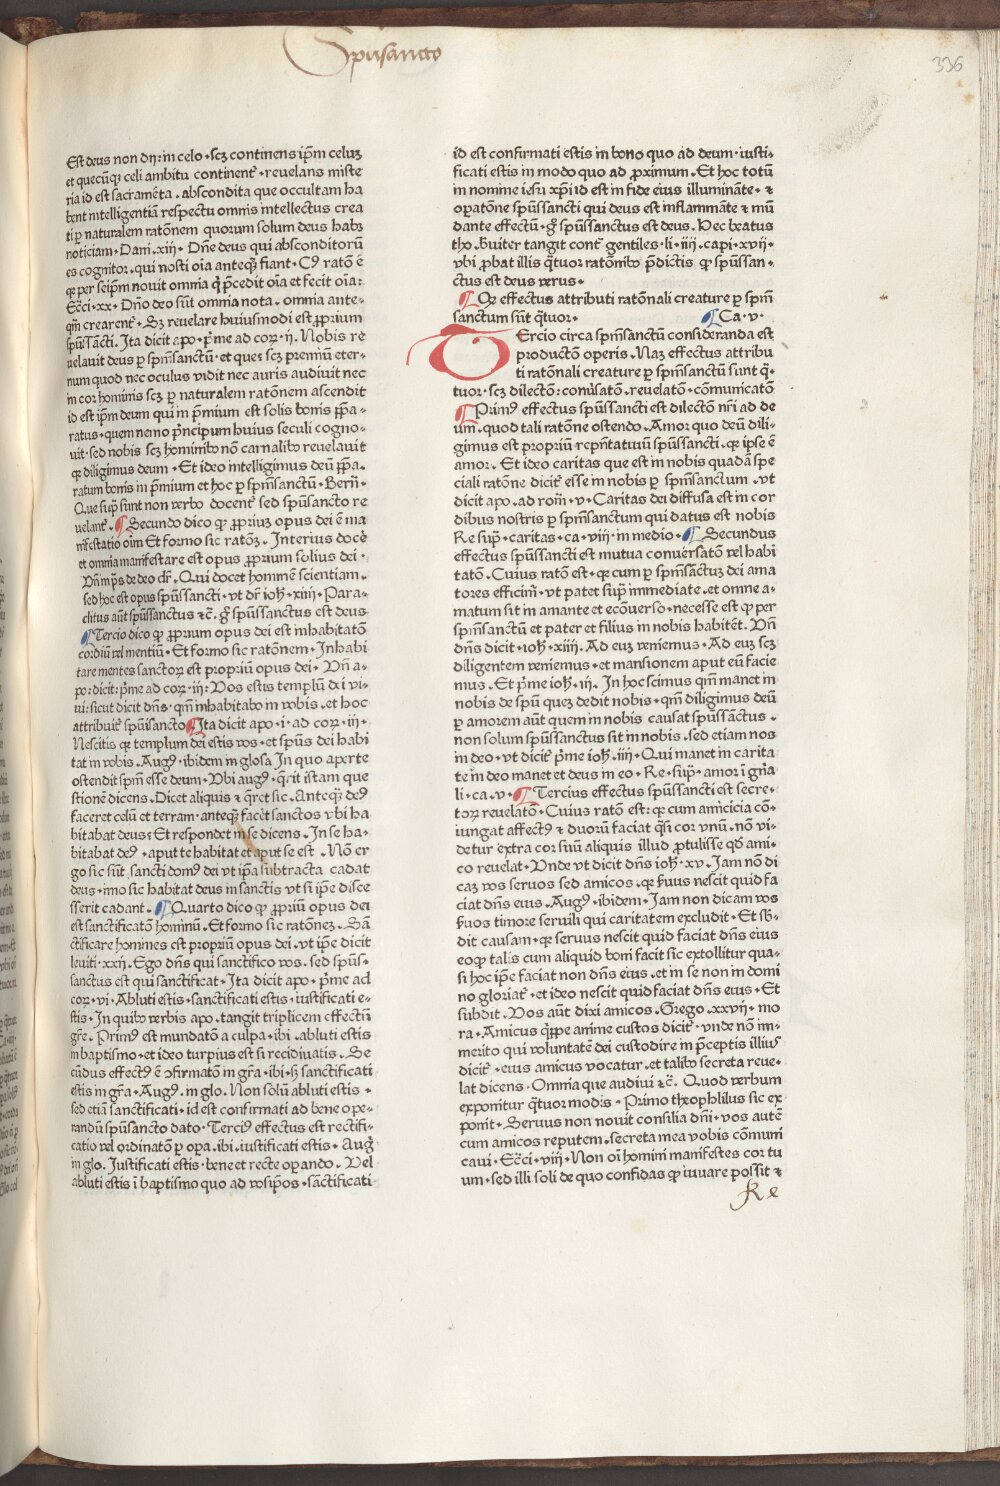 Spūsancto
336
Est deus non dn̄: in celo ⁘ scꝫ continens ip̄m celuꝫ
et quecūqꝫ celi ambitu continent᷑ ⁘ reuelans miste
ria id est sacramēta . abscondita que occultam ha
bent intelligentiā respectu omnis intellectus crea
ti ꝑ naturalem ratōnem quorum solum deus habꝫ
noticiam ⁘ Dani . xiii ⁘ Dn̄e deus qui absconditorū
es cognitor . qui nosti oīa anteqꝫ fiant ⁘ Cꝰ ratō ē
qꝛ per seip̄m nouit omnia q̄ p̄cedit oīa et fecit oīa:
Ecc̄i . xx ⁘ Dn̄o deo sūt omnia nota . omnia ante-
q̄m crearent᷑ ⁘ Sꝫ reuelare huiusmodi est ꝓprium
spūssācti. Ita dicit apo ⁘ p̄me ad corꝝ . ii. Nobis re
uelauit deus ꝑ spm̄sanctū ⁘ et que: scꝫ premiū eter-
num quod nec oculus vidit nec auris audiuit nec
in cor hominis scꝫ ꝑ naturalem ratōnem ascendit
id est ip̄m deum qui in p̄mium est solis bonis p̄pa-
ratus ⁘ quem nemo p̄ncipum huius seculi cogno-
uit . sed nobis scꝫ hominibꝰ nō carnalibꝰ reuelauit
qꝛ diligimus deum ⁘ Et ideo intelligimus deū p̄pa.
ratum bonis in p̄mium et hoc ꝑ spm̄sanctū ⁘ Bern̄ ⁘
Que sup̄ sunt non verbo docent᷑ sed spūsancto re
uelant᷑ . ¶ Secundo dico qꝙ ꝓpriuꝫ opus dei ē ma
nifestatio oīm Et formo sic ratōꝫ . Interius docē
et omnia manifestare est opus ꝓprium solius dei ⁘
Vn̄ in p̄s de deo dr̄ . Qui docet hominē scientiam .
sed hoc est opus spūssancti ⁘ vt dr̄ ioh̄ ⁘ xiiii ⁘ Para-
clitus aūt spūssanctus ⁊c̄ . g̊ spūssanctus est deus
¶ Tercio dico qꝙ ꝓprium opus dei est inhabitatō
cordiū vel mentium ⁘ Et formo sic ratōnem . Inhabi
tare mentes sanctoꝝ est propriū opus dei ⁘ Vn̄ a-
po: dicit: p̄me ad corꝝ . iii: Vos estis templū dei vi-
ui: sicut dicit dn̄s . qm̄ inhabitabo in vobis . et hoc
attribuit᷑ spūisancto ¶ Ita dicit apo . i . ad corꝝ . iii ⁘
Nescitis qꝛ templum dei estis vos ⁘ et spūs dei habi
tat in vobis . Augꝰ . ibidem in glosa In quo aperte
ostendit spm̄ esse deum ⁘ Vbi augꝰ ⁘ q̄rit istam que
stionē dicens . Dicet aliquis ⁊ q̄ret sic . Anteqꝫ deꝰ
faceret celū et terram . anteqꝫ facet᷑ sanctos vbi ha
bitabat deus: Et respondet in se dicens . In se ha-
bitabat deꝰ ⁘ aput te habitat et aput se est . Nō er
go sic sūt sancti domꝰ dei vt ip̄a subtracta cadat
deus ⁘ imo sic habitat deus in sanctis vt si ip̄e disce
sserit cadant . ¶ Quarto dico qꝙ ꝓpriū opus dei
est sanctificatō hominū . Et formo sic ratōneꝫ . Sā
ctificare homines est propriū opus dei . vt ip̄e dicit
leuiti . xxii . Ego dn̄s qui sanctifico vos . sed spūs-
sanctus est qui sanctificat ⁘ Ita dicit apo ⁘ p̄me ad
corꝝ . vi . Abluti estis ⁘ sanctificati estis . iustificati e-
stis ⁘ In quibꝰ verbis apo . tangit triplicem effectū
gr̄e . Primꝰ est mundatō a culpa . ibi . abluti estis
in baptismo ⁘ et ideo turpius est si recidiuatis . Se
cūdus effectꝰ ē ꝯfirmatō in gr̄a . ibi . sꝫ sanctificati
estis in gr̄a ⁘ Augꝰ . in glo . Non solū abluti estis ⁘
sed etiā sanctificati ⁘ id est confirmati ad bene ope-
randū spūsancto dato ⁘ Terciꝰ effectus est rectifi-
catio vel ordinatō ꝑ opa . ibi . iustificati estis ⁘ Augꝰ
in glo . Iustificati estis . bene et recte oꝑando . Vel
abluti estis ī baptismo quo ad vosip̄os ⁘ sāctificati
id est confirmati estis in bono quo ad deum . iusti-
ficati estis in modo quo ad ꝓximum . Et hoc totū
in nomine iesu xp̄i id est in fide eius illuminātē ⁘ ⁊
oꝑatōne spūssancti qui deus est inflammātē ⁊ mū
dante effectū ⁘ g̊ spūssanctus est deus . Hec beatus
tho . Buiter tangit cont᷑ gentiles . li . iiii . capi . xvii ⁘
vbi ꝓbat illis q̄tuor ratōnibꝰ p̄dictis qꝙ spūssan-
ctus est deus verus ⁘
¶ Qꝙ effectus attributi ratōnali creature ꝑ spm̄
sanctum sūt q̄tuor ⁘ ¶ Ca . v .
Tercio circa spm̄sanctū consideranda est
productō operis . Naꝫ effectus attribu
ti ratōnali creature ꝑ spm̄sanctū sunt q̄-
tuor . scꝫ dilectō: conūsatō . reuelatō ⁘ cōmunicatō
¶ Primꝰ effectus spūssancti est dilectō nr̄i ad de
um . quod tali ratōne ostendo . Amor quo deū dili-
gimus est propriū rep̄ntatiuū spūssancti . qꝛ ipse ē
amor . Et ideo caritas que est in nobis quadā spe
ciali ratōne dicit᷑ esse in nobis ꝑ spm̄sanctum . vt
dicit apo . ad rom̄ . v . Caritas dei diffusa est in cor
dibus nostris ꝑ spm̄sanctum qui datus est nobis
Re sup̄ . caritas . ca . viii . in medio . ¶ Secundus
effectus spūssancti est mutua conuersatō vel habi
tatō . Cuius ratō est . qꝛ cum ꝑ spm̄sanctuꝫ dei ama
tores efficim᷑ . vt patet sup̄ immediate . et omne a-
matum sit in amante et ecōuerso . necesse est qꝙ per
spm̄sanctū et pater et filius in nobis habitēt. Vn̄
dn̄s dicit . ioh̄ . xiiii . Ad euꝫ veniemus . Ad euꝫ scꝫ
diligentem veniemus . et mansionem aput eū facie
mus . Et p̄me ioh̄ . iii . In hoc scimus qm̄ manet in
nobis de spū quem dedit nobis . qm̄ diligimus deū
ꝑ amorem aūt quem in nobis causat spūssāctus .
non solum spūssanctus sit in nobis . sed etiam nos
in deo ⁘ vt dicit᷑ p̄me ioh̄ . iiii ⁘ Qui manet in carita
te in deo manet et deus in eo ⁘ Re . sup̄ . amor ī gn̄a
li . ca . v . ¶ Tercius effectus spūssancti est secre-
toꝝ reuelatō . Cuius ratō est: qꝛ cum amicicia cō-
iungat affectꝰ ⁊ duorū faciat q̄si cor vnū . nō vi-
detur extra cor suū aliquis illud ꝓtulisse qd̄ ami-
co reuelat . Vnde vt dicit dn̄s ioh̄ . xv . Iam nō di
caꝫ vos seruos sed amicos . qꝛ s̄uus nescit quid fa
ciat dn̄s eius . Augꝰ . ibidem . Iam non dicam vos
s̄uos timore seruili qui caritatem excludit . Et sb̄-
dit causam . qꝛ seruus nescit quid faciat dn̄s eius
eoqꝙ talis cum aliquid boni facit sic extollitur qua-
si hoc ip̄e faciat non dn̄s eius . et in se non in domi
no gloriat᷑ . et ideo nescit quid faciat dn̄s eius . Et
subdit . Vos aūt dixi amicos . Grego . xxvii . mo
ra . Amicus q̄ꝑe anime custos dicit᷑ . vnde nō im-
merito qui voluntatē dei custodire in p̄ceptis illiuꝰ
dicit᷑ . eius amicus vocatur . et talibꝰ secreta reue-
lat dicens . Omnia que audiui ⁊c̄ . Quod verbum
exponitur q̄tuor modis ⁘ Primo theophilus sic ex
ponit . Seruus non nouit consilia dn̄i . vos autē
cum amicos reputem . secreta mea vobis cōmuni
caui . Ecc̄i . viii . Non oī homini manifestes cor tu
um . sed illi soli de quo confidas qꝙ iuuare possit ⁊
Re